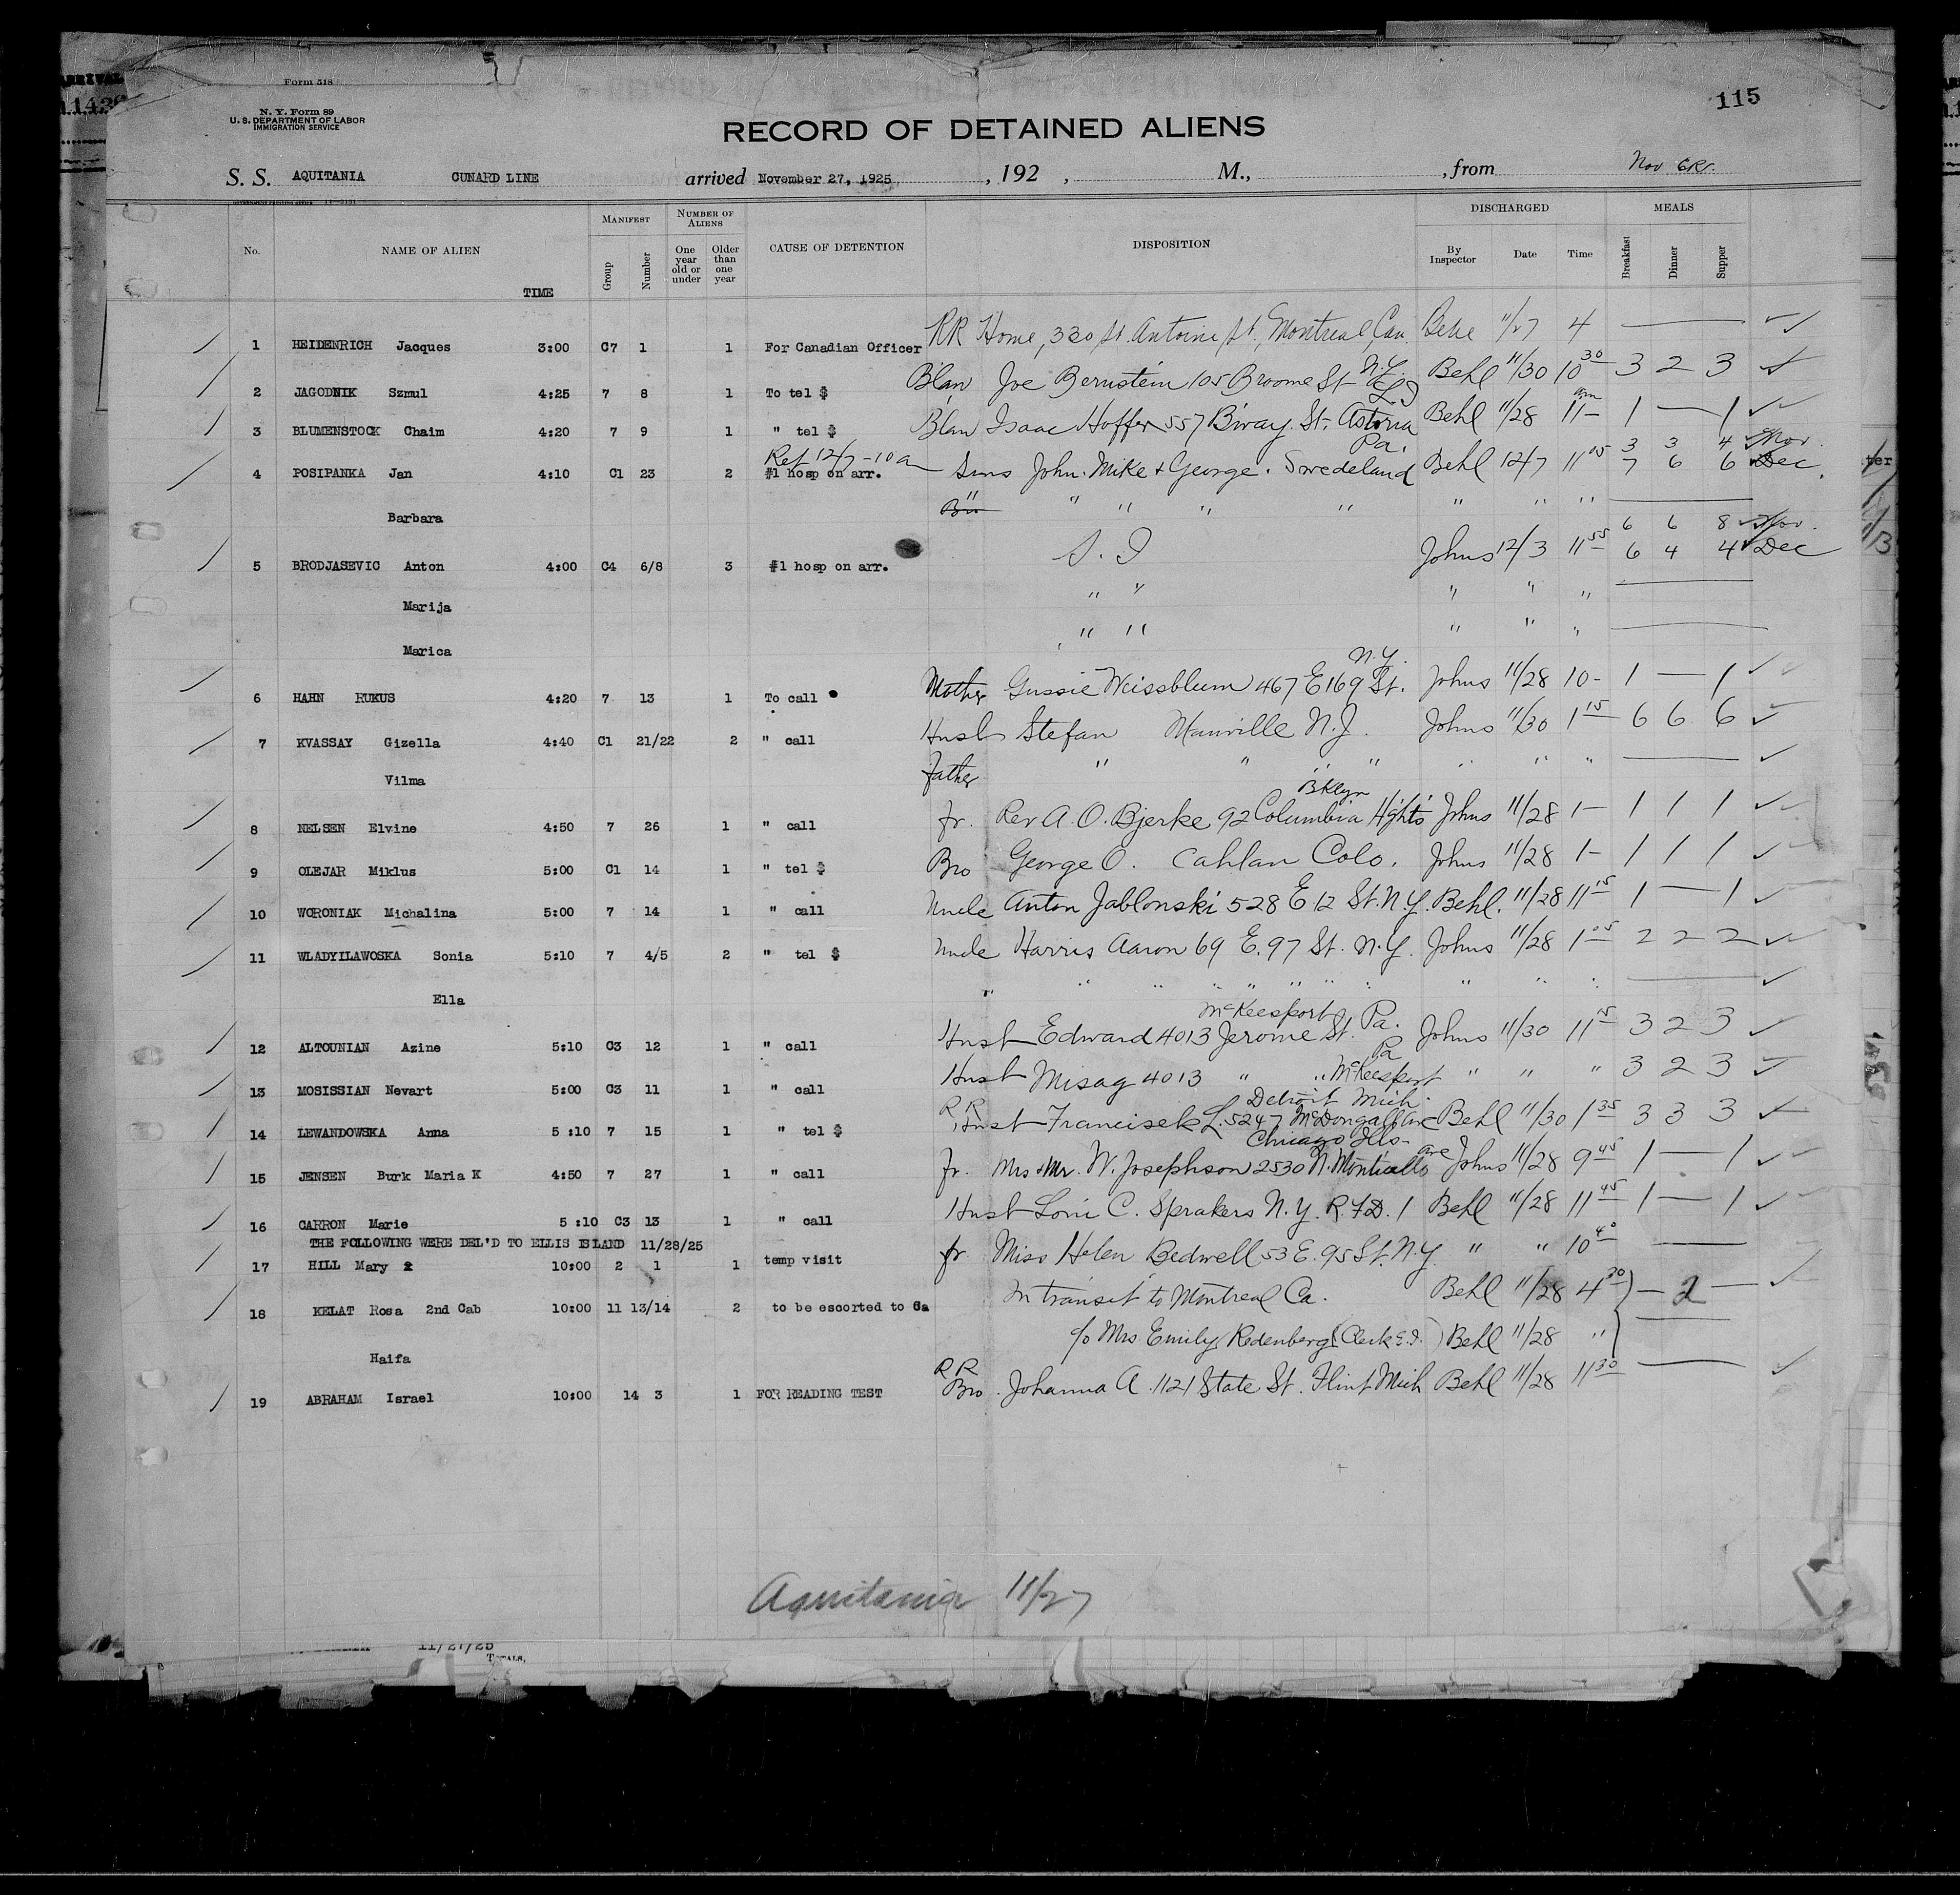 ARRIVAL
Form 518
115
N. Y. Form 89
U. S. DEPARTMENT OF LABOR
IMMIGRATION SERVICE
RECORD OF DETAINED ALIENS
S. S. AQUITANIA CUNARD LINE arrived November 27, 1925, 192 , M., , from Nov
No. NAME OF ALIEN TIME MANIFEST Group Number NUMBER OF ALIENS One year old or under Older than one year CAUSE OF DETENTION DISPOSITION DISCHARGED By Inspector Date Time MEALS Breakfast Dinner Supper
1 HEIDENRICH Jacques 3:00 C7 1 1 For Canadian Officer RR Home, 320 St. Antoine St, Montreal, Can. Behl 11/27 4
2 JAGODNIK Szmul 4:25 7 8 1 To tel $ B'law Joe Bernstein 105 Broome St N.Y. Behl 11/30 10 30 3 2 3
3 BLUMENSTOCK Chaim 4:20 7 9 1 " tel $ B'law Isaac Hoffer 557 B'way. St. Astoria Behl 11/28 11- 1 — 1
Ref 12/7 - 10 a 3 3 4 Nov.
4 POSIPANKA Jan 4:10 C1 23 2 #1 hosp on arr. Sons John. Mike + George. Swedeland Pa. Behl 12/7 11 05 7 6 6 Dec.
Barbara " " " " " " " "
6 6 8 Nov.
5 BRODJASEVIC Anton 4:00 C4 6/8 3 #1 hosp on arr. S. I Johns 12/3 11 55 6 4 4 Dec
Marija " " " " "
Marica " " " " "
6 HAHN RUKUS 4:20 7 13 1 To call Mother Gussie Weissblum 467 E 169 St. N.Y. Johns 11/28 10- 1 — 1
7 KVASSAY Gizella 4:40 C1 21/22 2 " call Husb Stefan Manville N.J. Johns 11/30 1 15 6 6 6
Vilma Father " " " " " " "
8 NELSEN Elvine 4:50 7 26 1 " call fr. Rev A. O. Bjerke 92 Columbia Hghts Bklyn Johns 11/28 1- 1 1 1
9 OLEJAR Miklus 5:00 C1 14 1 " tel $ Bro George O. Cahlan Colo. Johns 11/28 1- 1 1 1
10 WORONIAK Michalina 5:00 7 14 1 " call Uncle Anton Jablonski 528 E 12 St. N.Y. Behl. 11/28 11 15 1 — 1
11 WLADYILAWOSKA Sonia 5:10 7 4/5 2 " tel $ Uncle Harris Aaron 69 E. 97 St. N.Y. Johns 11/28 1 05 2 2 2
Ella " " " " " " " " " "
12 ALTOUNIAN Azine 5:10 C3 12 1 " call Husb Edward 4013 Jerome St. McKeesport, Pa. Johns 11/30 11 15 3 2 3
13 MOSISSIAN Nevart 5:00 C3 11 1 " call Husb Misag 4013 " " McKeesport Pa " " " 3 2 3
14 LEWANDOWSKA Anna 5 :10 7 15 1 " tel $ RR Husb Francisek L. 5247 McDongall Ave Detroit Mich. Behl 11/30 1 35 3 3 3
15 JENSEN Burk Maria K 4:50 7 27 1 " call fr. Mrs + Mr. W. Josephson 2530 N. Monticello ave Chicago Ills- Johns 11/28 9 45 1 — 1
16 CARRON Marie 5 :10 C3 13 1 " call Husb Loui C. Sprakers N.Y. R.F.D. 1 Behl 11/28 11 45 1 — 1
THE FOLLOWING WERE DEL'D TO ELLIS ISLAND 11/28/25
17 HILL Mary 10:00 2 1 1 temp visit fr. Miss Helen Bedwell 53 E. 95 St. N.Y. " " 10 40
18 KELAT Rosa 2nd Cab 10:00 11 13/14 2 to be escorted to Ca In transit to Montreal Ca. Behl 11/28 4 30 — 2 —
Haifa c/o Mrs Emily Redenberg (Clerk E.I.) Behl 11/28 "
19 ABRAHAM Israel 10:00 14 3 1 FOR READING TEST RR Bro. Johanna A. 1121 State St. Flint Mich Behl 11/28 11 30
Aquitania 11/27
11/27/25
TOTALS.